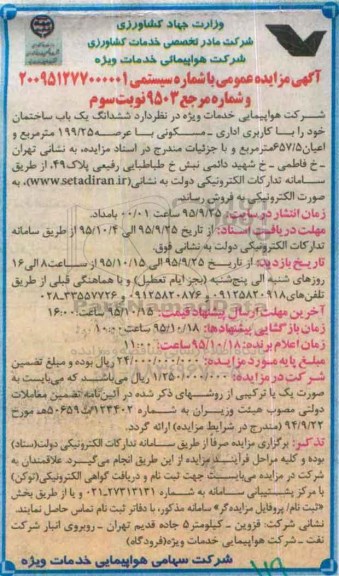 وزارت جهاد کشاورزی
شرکت مادر تخصصی خدمات کشاورزی
شرکت هواپیمائی خدمات ویژه
آگهی مزایده عمومی با شماره سیستمی ۲۰۰۹۵۱۲۷۷۰۰۰۰۰۱
و شماره مرجع ۹۵۰۳ نوبت سوم
شرکت هواپیمایی خدمات ویژه در نظر دارد ششدانگ یک باب ساختمان
خود را با کاربری اداری - مسکونی با عرصه ۱۹۹/۲۵ مترمربع و
اعیان ۶۵۷/۵ مترمربع و با جزئیات مندرج در اسناد مزایده، به نشانی تهران
- خ فاطمی - خ شهید دائمی نبش خ طباطبایی رفیعی پلاک ۴۹، از طریق
سامانه تدارکات الکترونیکی دولت به نشانی (www.setadiran.ir)، به
صورت الکترونیکی به فروش رساند.
زمان انتشار در سایت: ۹۵/۹/۲۵ ساعت ۰۰/۰۱ بامداد.
مهلت دریافت اسناد: از تاریخ ۹۵/۹/۲۵ الی ۹۵/۱۰/۴ از طریق سامانه
تدارکات الکترونیکی دولت به نشانی فوق.
تاریخ بازدید: از تاریخ ۹۵/۹/۲۵ الی ۹۵/۱۰/۱۵ از ساعت ۸ الی ۱۶
روزهای شنبه الی پنج‌شنبه (بجز ایام تعطیل) و با هماهنگی قبلی از طریق
تلفن‌های ۰۹۱۲۵۸۲۰۹۱۸ و ۰۹۱۲۵۸۲۰۸۷۶ و ۰۲۸-۳۳۵۵۷۷۲۶
آخرین مهلت ارسال پیشنهاد قیمت: ۹۵/۱۰/۱۵ ساعت: ۱۶:۰۰
زمان بازگشایی پیشنهادها: ۹۵/۱۰/۱۸ ساعت ۱۰:۰۰
زمان اعلام برنده: ۹۵/۱۰/۱۸ ساعت: ۱۱:۰۰
مبلغ پایه مورد مزایده: ۲۴/۰۰۰/۰۰۰/۰۰۰ ریال بوده و مبلغ تضمین
شرکت در مزایده: ۱/۲۵۰/۰۰۰/۰۰۰ ریال می‌باشد که می‌بایست به
صورت یک یا ترکیبی از روشهای ذکر شده در آئین‌نامه تضمین معاملات
دولتی مصوب هیئت وزیران به شماره ۱۲۳۴۰۲/ت۵۰۶۵۹هـ مورخ
۹۴/۹/۲۲ (مندرج در شرایط مزایده) ارائه گردد.
تذکر: برگزاری مزایده صرفا از طریق سامانه تدارکات الکترونیکی دولت (ستاد)
بوده و کلیه مراحل فرآیند مزایده از این طریق انجام می‌گیرد. علاقمندان به
شرکت در مزایده می‌بایست جهت ثبت نام و دریافت گواهی الکترونیکی (توکن)
با مرکز پشتیبانی سامانه به شماره ۰۲۱-۲۷۳۱۳۱۳۱ و یا از طریق بخش
«ثبت نام/ پروفایل مزایده‌گر» سامانه مذکور، با دفاتر ثبت نام تماس حاصل نمایند.
نشانی شرکت: قزوین - کیلومتر ۵ جاده قدیم تهران - روبروی انبار شرکت
نفت - شرکت هواپیمایی خدمات ویژه (فرودگاه)
شرکت سهامی هواپیمایی خدمات ویژه